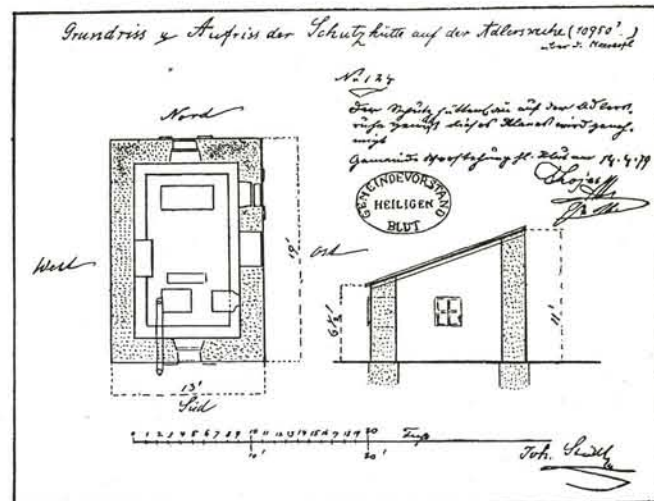 Grundriss u Aufriss der Schutzhütte auf der Adlersruhe (10950'.)
über d. Meeresfl
No 124
Der Schutzhüttenbau auf der Adlers-
ruhe gemäß dieses Planes wird geneh-
migt
Gemeinde Vorstehung Hl. Blut am 14.4.79
GEMEINDEVORSTAND
HEILIGEN
BLUT
Nord
West
Ost
19'
13'
Süd
6½'
11'
0 1 2 3 4 5 6 7 8 9 10 11 12 13 14 15 16 17 18 19 20 Fuß
10' 20'
Joh.